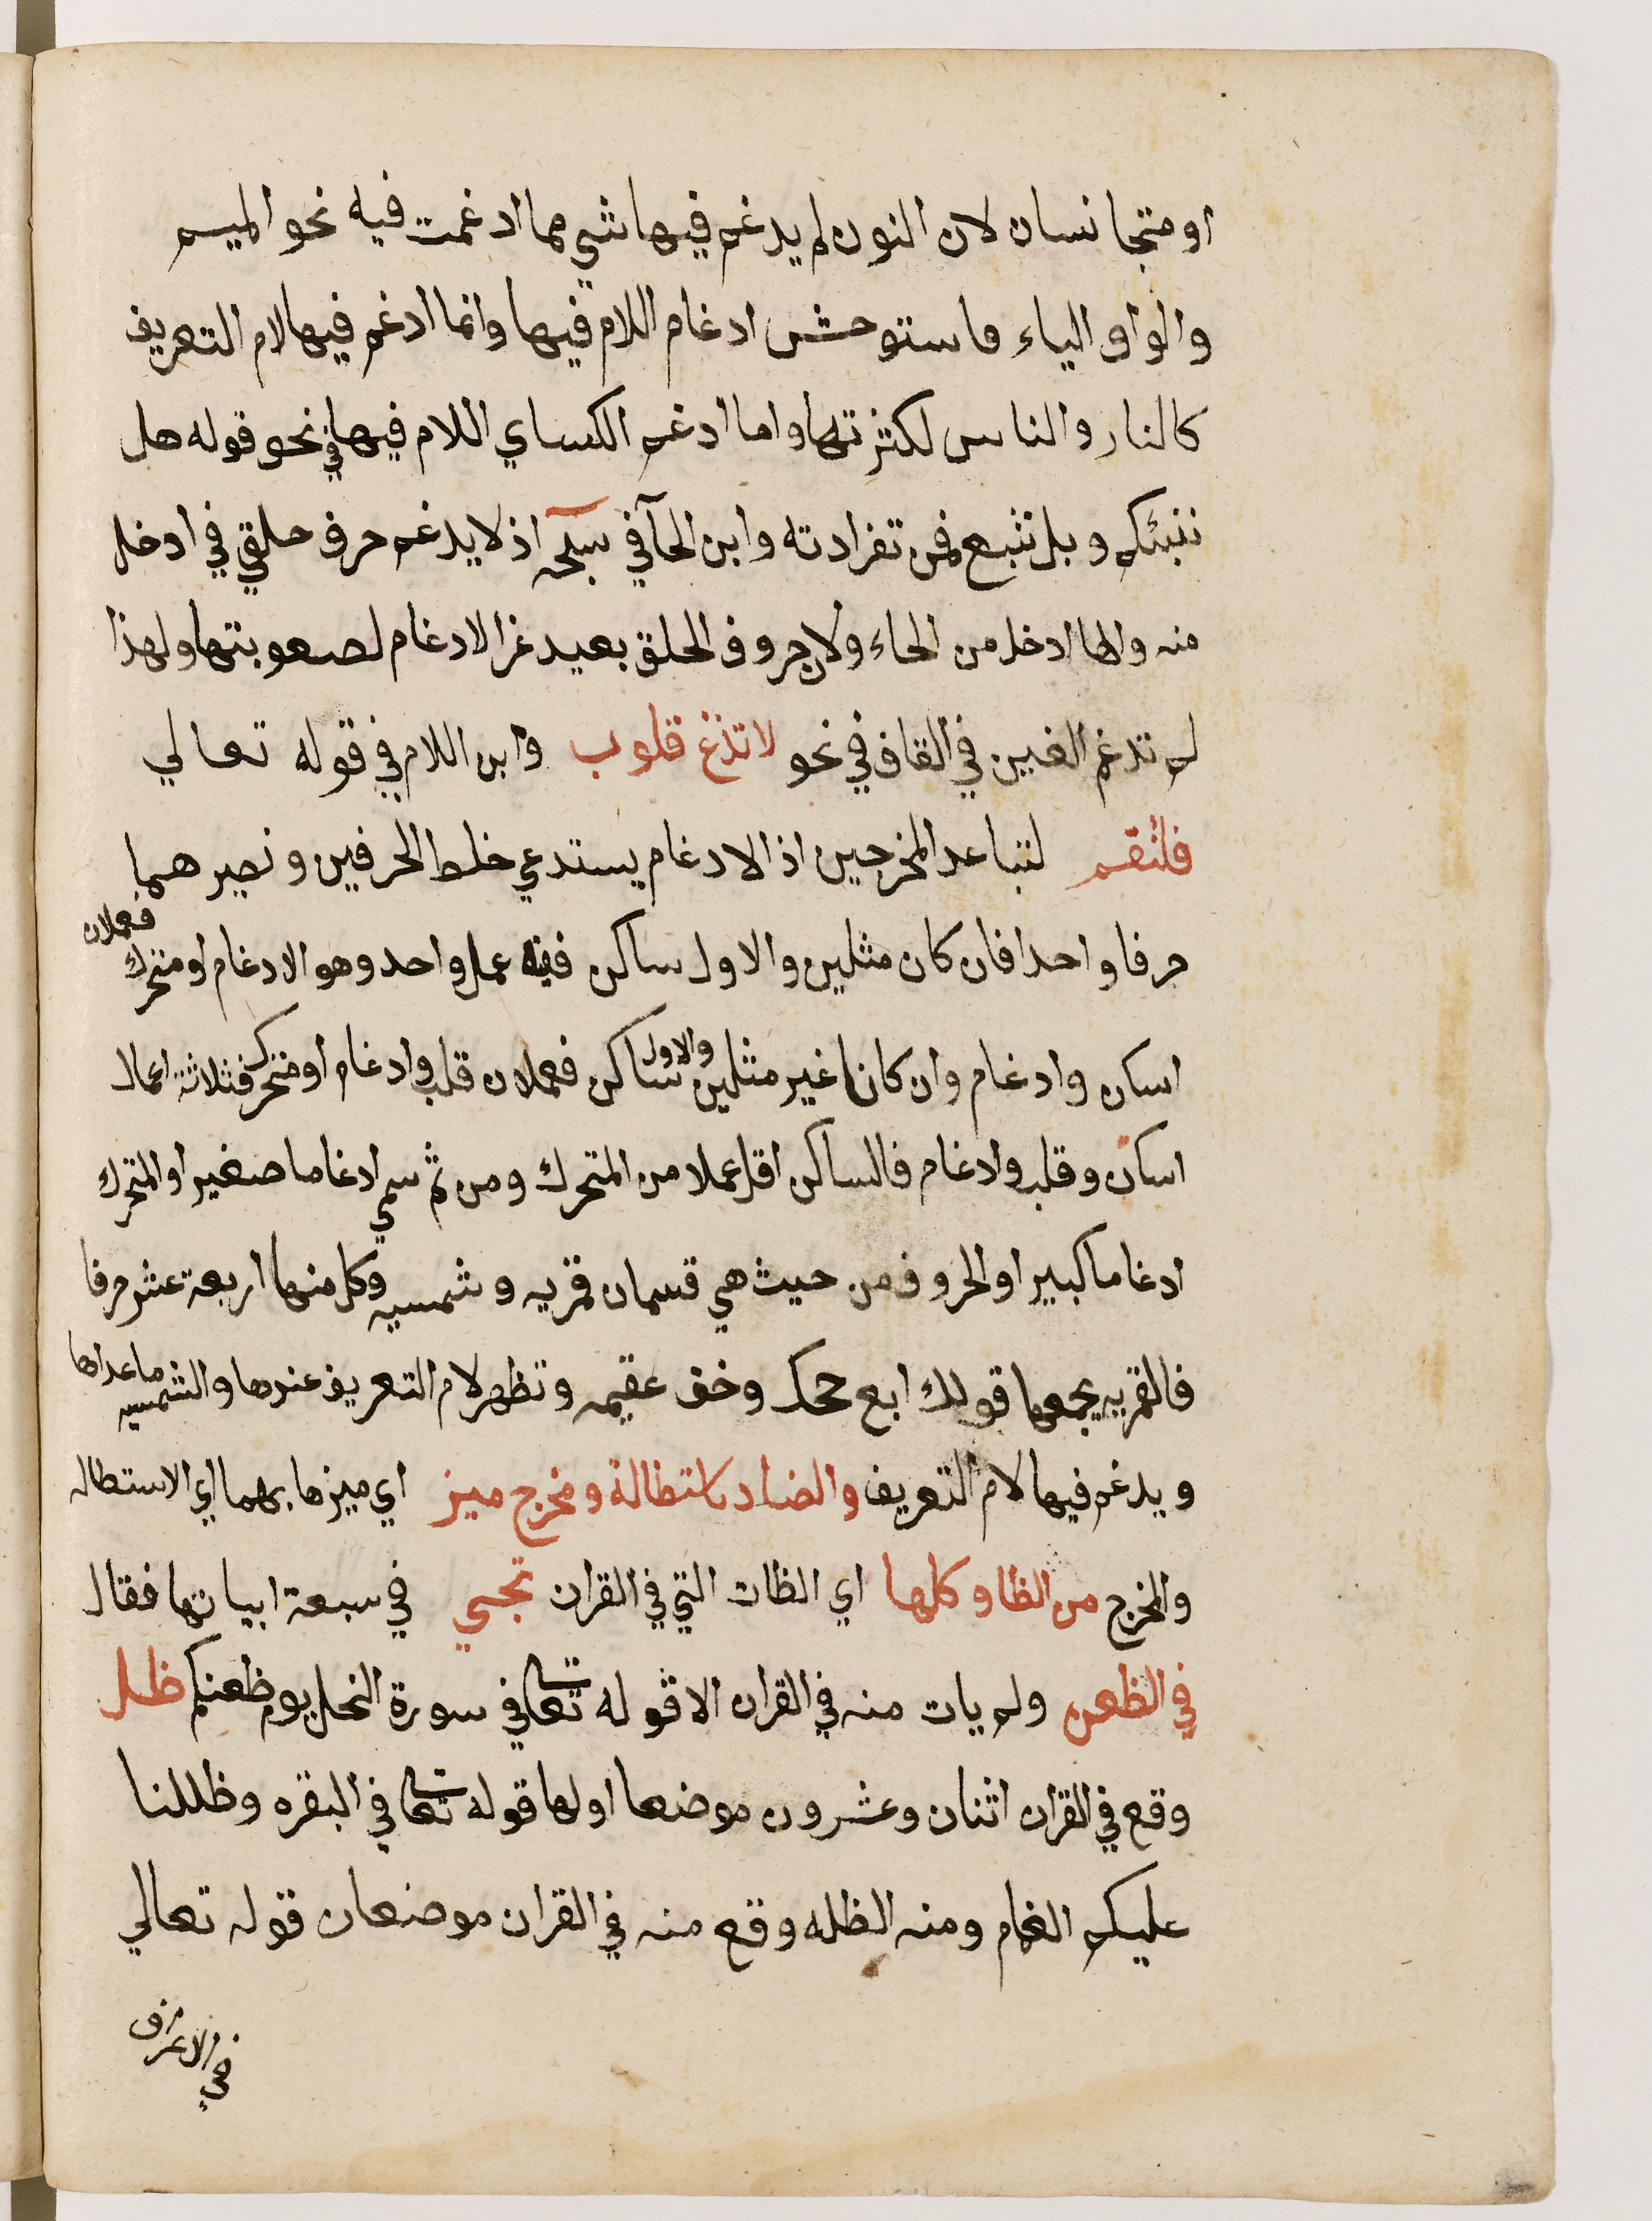 او متجانسان لان النون لم يدغم فيها شي مما ادغمت فيه نحو الميم
والواو والياء فاستوحش ادغام اللام فيها وانما ادغم فيها لام التعريف
كالنار والناس لكثرتها واما ادغم الكساي اللام فيها في نحو قوله هل
ننبئكم وبل نتبع فمن تفرادته وابن الحآ في سبحه اذ لا يدغم حرف حلقي في ادخل
منه والها ادخل من الحاء ولان حروف الحلق بعيد عن الادغام لصعوبتها ولهذا
لم تدغم الغين في القاف في نحو لا تزغ قلوب وابن اللام في قوله تعالي
فلتقم لتباعد المخرجين اذ الادغام يستدعي خلط الحرفين ونصيرهما
حرفا واحدا فان كان مثلين والاول ساكن ففيه عمل واحد وهو الادغام او متحرك فعملان
اسكان وادغام وان كانا غير مثلين والاول ساكن فعملان قلب وادغام او متحرك فثلاثة اعمال
اسكان وقلب وادغام فالساكن اقل عملا من المتحرك ومن ثم سمي ادغاما صغير او المتحرك
ادغاما كبير او الحروف من حيث هي قسمان قمريه وشمسيه وكل منها اربعة عشر حرفا
فالقمريه يجمعها قولك ابغ حجك وخف عقيمه وتظهر لام التعريف عندها والشمسيه ماعداها
ويدغم فيها لام التعريف والضاد باستطالة ومخرج ميز اي ميزها بهما اي الاستطاله
والمخرج من الظا وكلها اي الظات التي في القران تجي في سبعة ابياتها فقال
في الظعن ولم يات منه في القران الا قوله تعا في سورة النحل يوم ظعنكم ظل
وقع في القران اثنان وعشرون موضعا اولها قوله تعا في البقره وظللنا
عليكم الغمام ومنه الظله وقع منه في القران موضعان قوله تعالي
في الاعراف